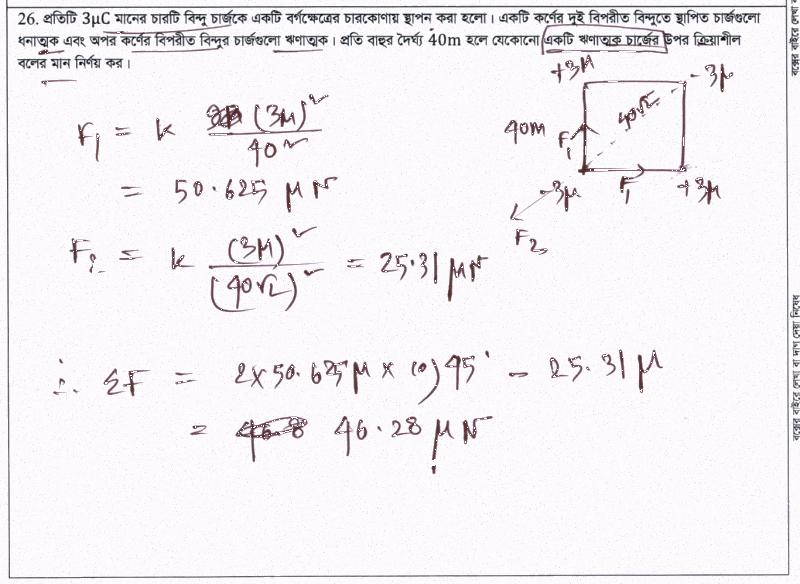 26. প্রতিটি 3μC মানের চারটি বিন্দু চার্জকে একটি বর্গক্ষেত্রের চারকোণায় স্থাপন করা হলো। একটি কর্ণের দুই বিপরীত বিন্দুতে স্থাপিত চার্জগুলো
ধনাত্মক এবং অপর কর্ণের বিপরীত বিন্দুর চার্জগুলো ঋণাত্মক। প্রতি বাহুর দৈর্ঘ্য 40m হলে যেকোনো একটি ঋণাত্মক চার্জের উপর ক্রিয়াশীল
বলের মান নির্ণয় কর।
+3μ -3μ
40m 40√2
F₁
-3μ F₁ +3μ
F₂
F₁ = k (3μ)² / 40²
= 50.625 μN
F₂ = k (3μ)² / (40√2)² = 25.31 μN
∴ ΣF = 2×50.625μ × cos 45° - 25.31 μ
= 46.28 μN
বক্সের বাইরে লেখা বা দাগ দেয়া নিষেধ